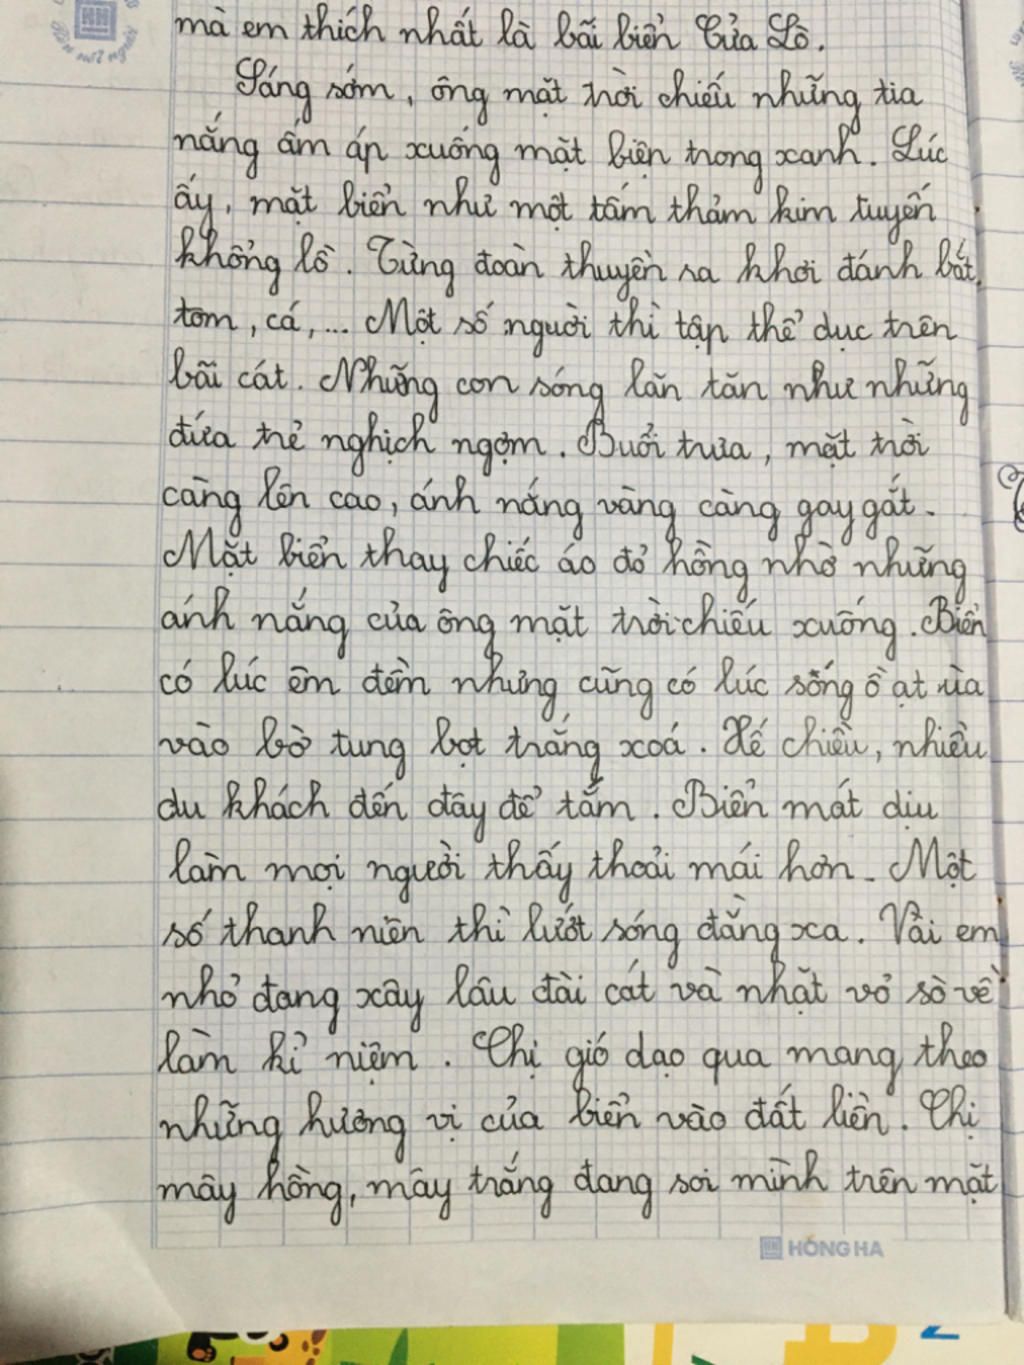 mà em thích nhất là bãi biển Cửa Lò.
Sáng sớm, ông mặt trời chiếu những tia
nắng ấm áp xuống mặt biển trong xanh. Lúc
ấy, mặt biển như một tấm thảm kim tuyến
khổng lồ. Từng đoàn thuyền ra khơi đánh bắt
tôm, cá,... Một số người thì tập thể dục trên
bãi cát. Những con sóng lăn tăn như những
đứa trẻ nghịch ngợm. Buổi trưa, mặt trời
càng lên cao, ánh nắng vàng càng gay gắt.
Mặt biển thay chiếc áo đỏ hồng nhờ những
ánh nắng của ông mặt trời chiếu xuống. Biển
có lúc êm đềm nhưng cũng có lúc sóng ồ ạt ùa
vào bờ tung bọt trắng xoá. Xế chiều, nhiều
du khách đến đây để tắm. Biển mát dịu
làm mọi người thấy thoải mái hơn. Một
số thanh niên thì lướt sóng đằng xa. Vài em
nhỏ đang xây lâu đài cát và nhặt vỏ sò về
làm kỉ niệm. Chị gió dạo qua mang theo
những hương vị của biển vào đất liền. Chị
mây hồng, mây trắng đang soi mình trên mặt
HONG HA